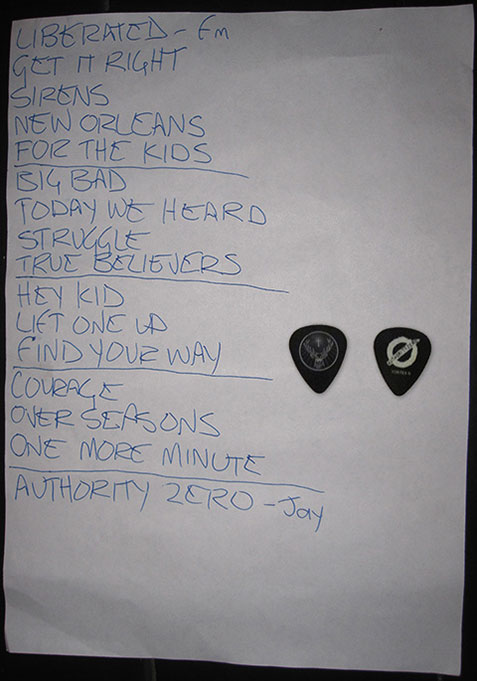 LIBERATED - Em
GET IT RIGHT
SIRENS
NEW ORLEANS
FOR THE KIDS
BIG BAD
TODAY WE HEARD
STRUGGLE
TRUE BELIEVERS
HEY KID
LIFT ONE UP
FIND YOUR WAY
COURAGE
OVER SEASONS
ONE MORE MINUTE
AUTHORITY ZERO - Jay